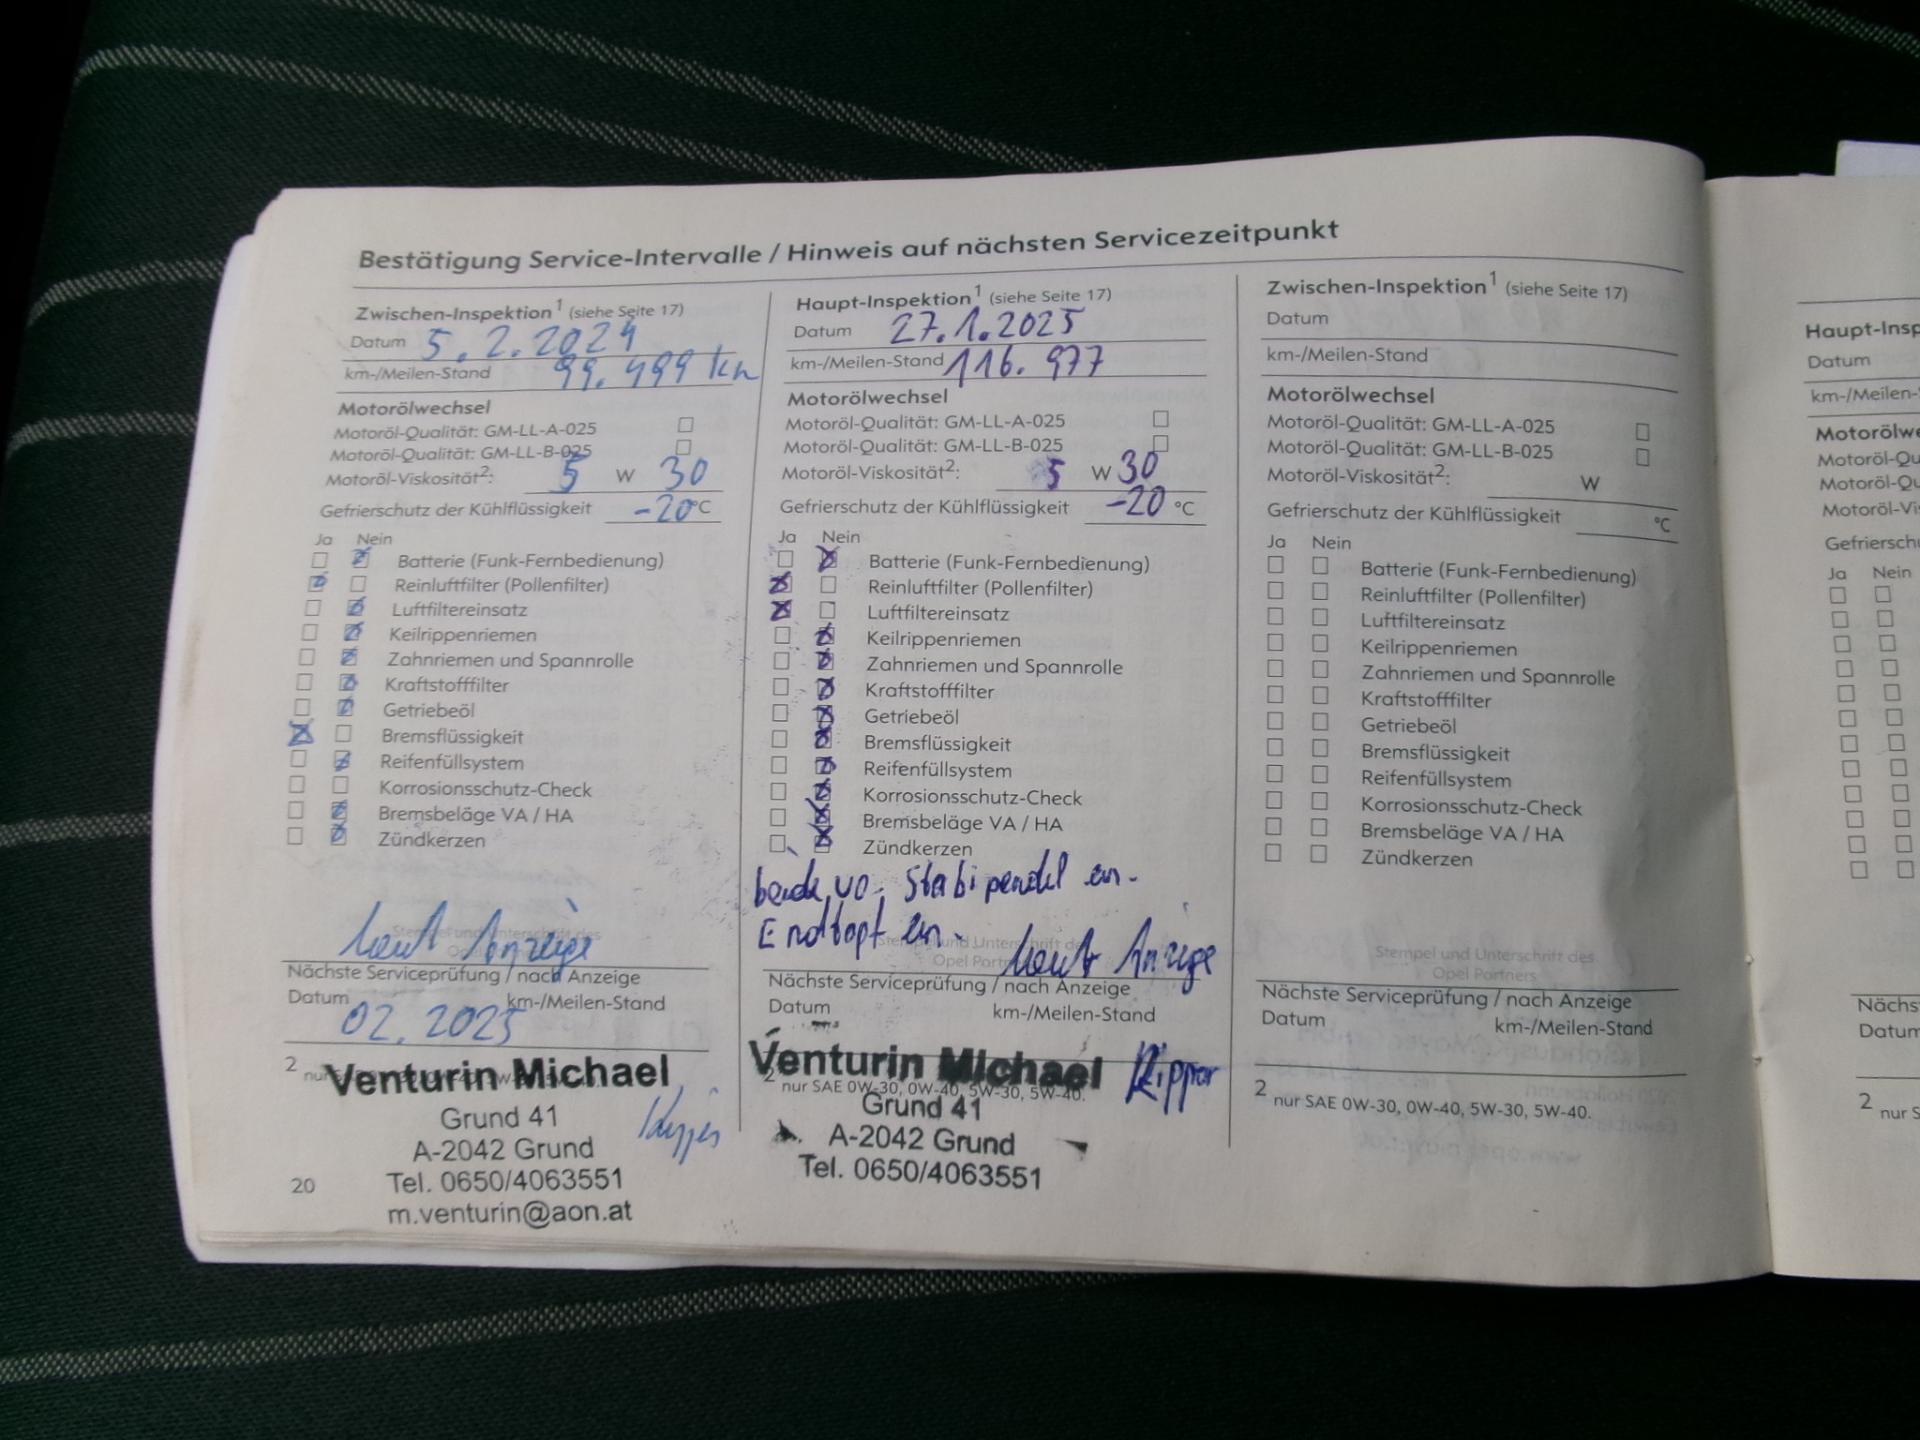 Bestätigung Service-Intervalle / Hinweis auf nächsten Servicezeitpunkt
Zwischen-Inspektion1 (siehe Seite 17)
Datum 5.2.2024
km-/Meilen-Stand 99.499 km
Motorölwechsel
Motoröl-Qualität: GM-LL-A-025
Motoröl-Qualität: GM-LL-B-025
Motoröl-Viskosität2: 5 W 30
Gefrierschutz der Kühlflüssigkeit -20 °C
Ja Nein
Batterie (Funk-Fernbedienung)
Reinluftfilter (Pollenfilter)
Luftfiltereinsatz
Keilrippenriemen
Zahnriemen und Spannrolle
Kraftstofffilter
Getriebeöl
Bremsflüssigkeit
Reifenfüllsystem
Korrosionsschutz-Check
Bremsbeläge VA / HA
Zündkerzen
laut Anzeige
Stempel und Unterschrift des
Nächste Serviceprüfung / nach Anzeige
Datum km-/Meilen-Stand
02.2025
2
Venturin Michael
Grund 41
A-2042 Grund
Tel. 0650/4063551
m.venturin@aon.at
20
Haupt-Inspektion1 (siehe Seite 17)
Datum 27.1.2025
km-/Meilen-Stand 116.977
Motorölwechsel
Motoröl-Qualität: GM-LL-A-025
Motoröl-Qualität: GM-LL-B-025
Motoröl-Viskosität2: 5 W 30
Gefrierschutz der Kühlflüssigkeit -20 °C
Ja Nein
Batterie (Funk-Fernbedienung)
Reinluftfilter (Pollenfilter)
Luftfiltereinsatz
Keilrippenriemen
Zahnriemen und Spannrolle
Kraftstofffilter
Getriebeöl
Bremsflüssigkeit
Reifenfüllsystem
Korrosionsschutz-Check
Bremsbeläge VA / HA
Zündkerzen
beide vo. Stabipendel ern.
Endtopf ern.
Stempel und Unterschrift des
Opel Partners
laut Anzeige
Nächste Serviceprüfung / nach Anzeige
Datum km-/Meilen-Stand
Venturin Michael
2 nur SAE 0W-30, 0W-40, 5W-30, 5W-40.
Grund 41
A-2042 Grund
Tel. 0650/4063551
Zwischen-Inspektion1 (siehe Seite 17)
Datum
km-/Meilen-Stand
Motorölwechsel
Motoröl-Qualität: GM-LL-A-025
Motoröl-Qualität: GM-LL-B-025
Motoröl-Viskosität2: W
Gefrierschutz der Kühlflüssigkeit °C
Ja Nein
Batterie (Funk-Fernbedienung)
Reinluftfilter (Pollenfilter)
Luftfiltereinsatz
Keilrippenriemen
Zahnriemen und Spannrolle
Kraftstofffilter
Getriebeöl
Bremsflüssigkeit
Reifenfüllsystem
Korrosionsschutz-Check
Bremsbeläge VA / HA
Zündkerzen
Stempel und Unterschrift des
Opel Partners
Nächste Serviceprüfung / nach Anzeige
Datum km-/Meilen-Stand
2 nur SAE 0W-30, 0W-40, 5W-30, 5W-40.
Haupt-Insp
Datum
km-/Meilen-
Motorölwe
Motoröl-Qu
Motoröl-Qu
Motoröl-Vi
Gefrierschu
Ja Nein
Nächs
Datum
2 nur S